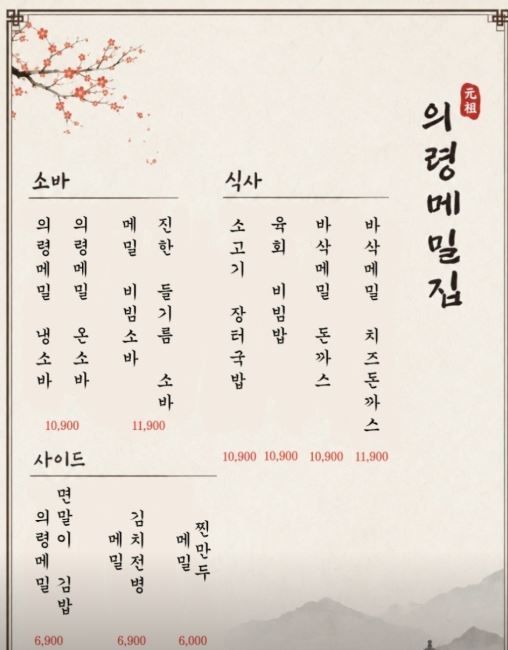 元祖
의령메밀집
식사
바삭메밀 치즈돈까스
11,900
바삭메밀 돈까스
10,900
육회 비빔밥
10,900
소고기 장터국밥
10,900
소바
진한 들기름 소바
메밀 비빔소바
11,900
의령메밀 온소바
의령메밀 냉소바
10,900
사이드
메밀
찐만두
6,000
메밀
김치전병
6,900
의령메밀
면말이 김밥
6,900